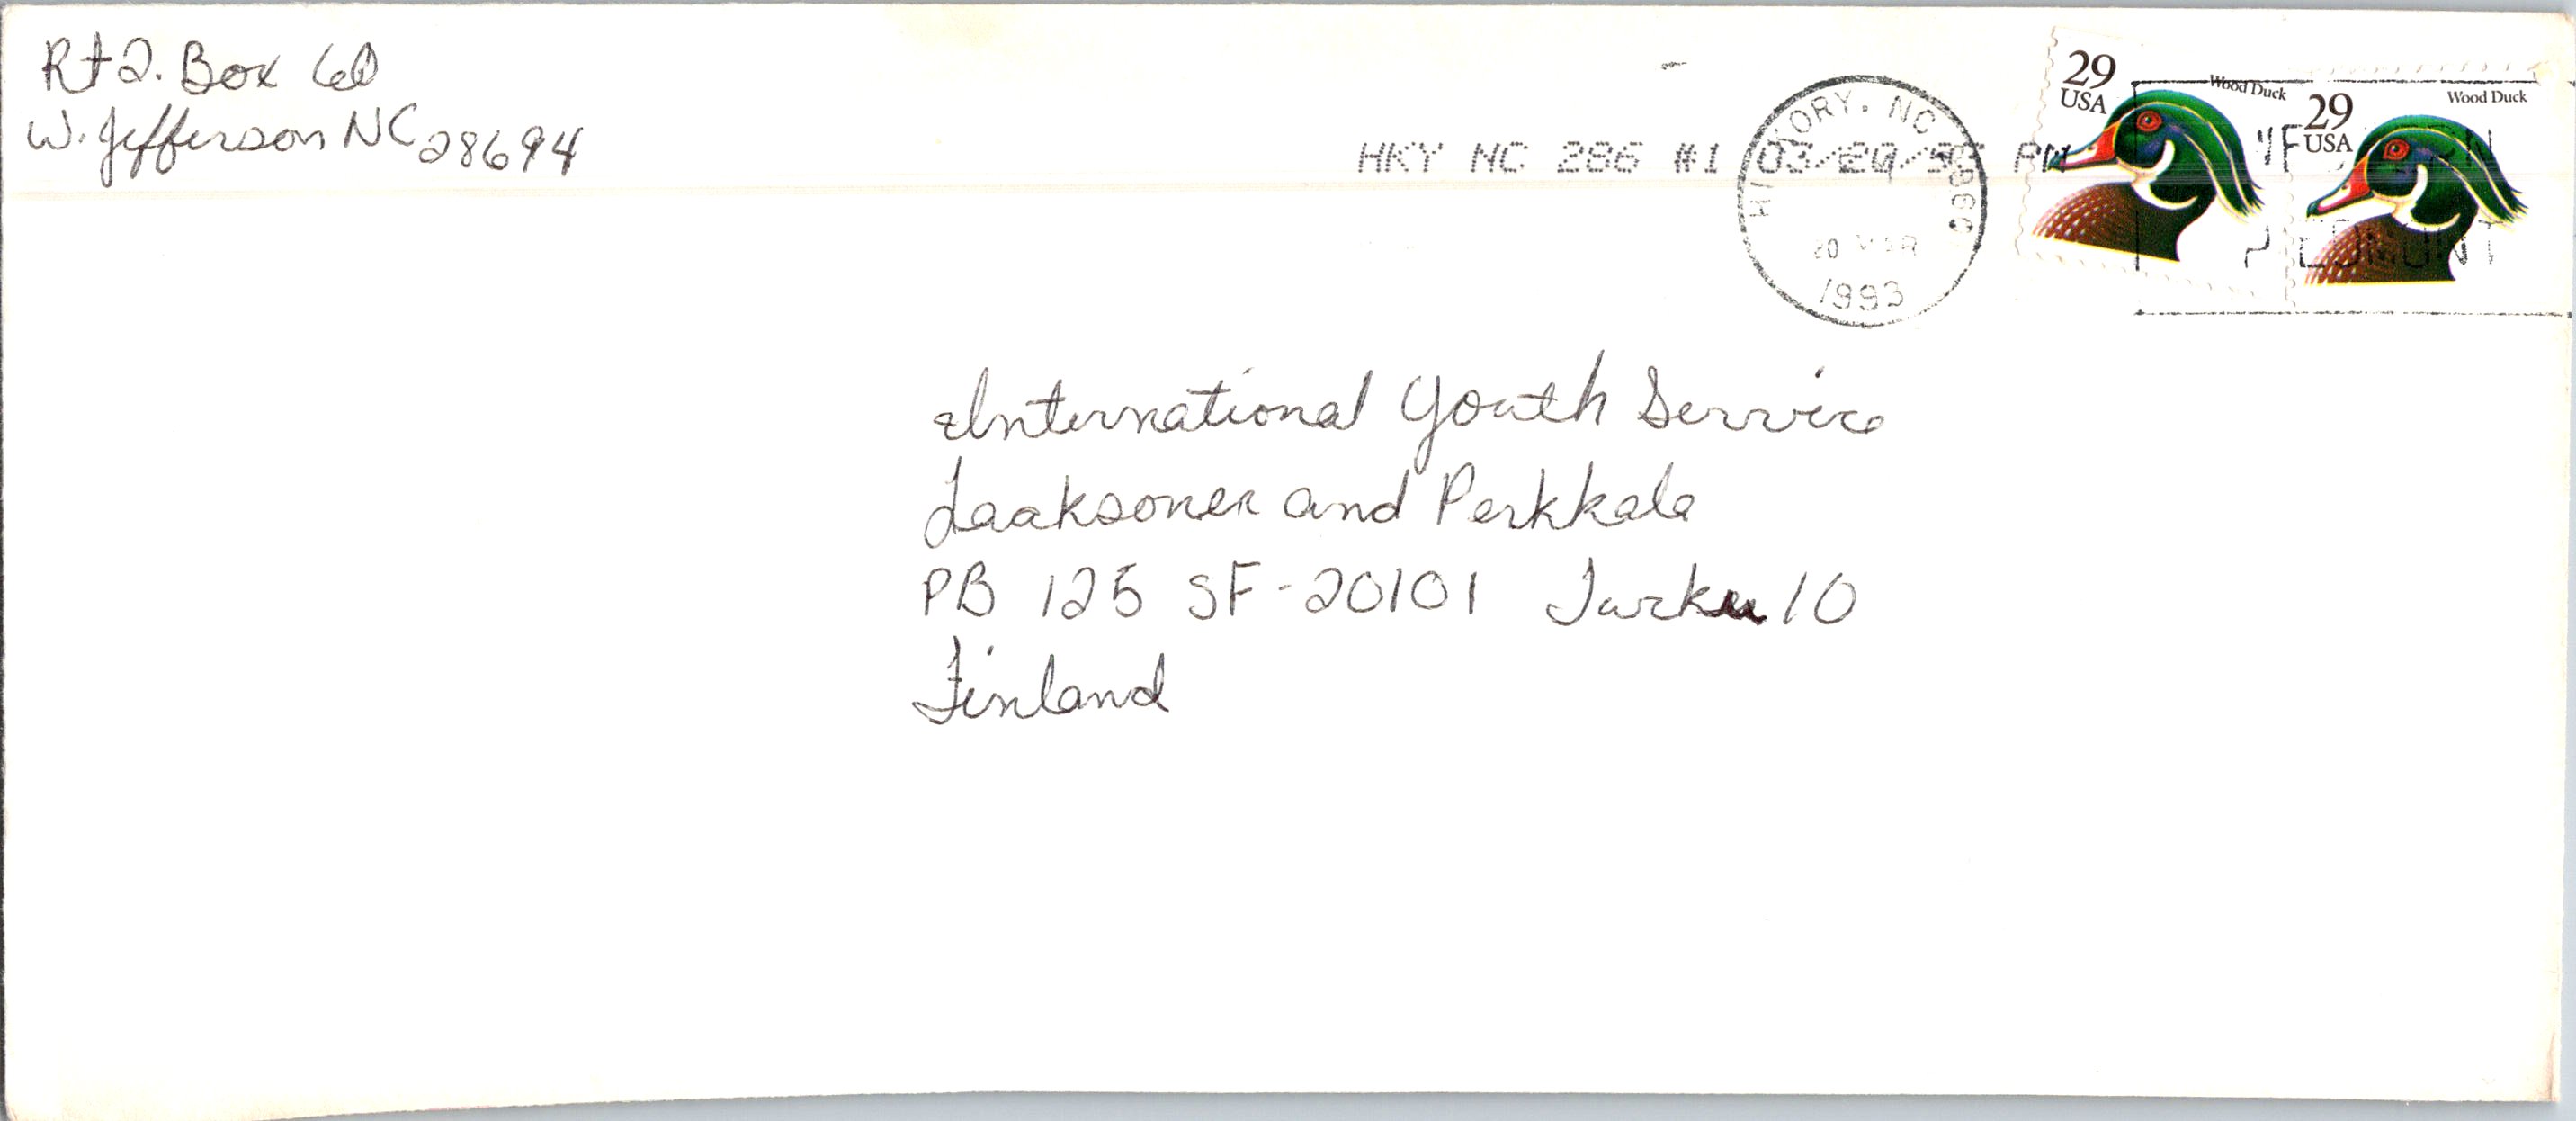 Rt 2. Box 60
W. Jefferson NC 28694
HKY NC 286 #1 PM
HICKORY. NC
20 MAR
1993
29
USA
Wood Duck
29
USA
Wood Duck
International Youth Service
Laaksonen and Perkkala
PB 125 SF-20101 Turku 10
Finland